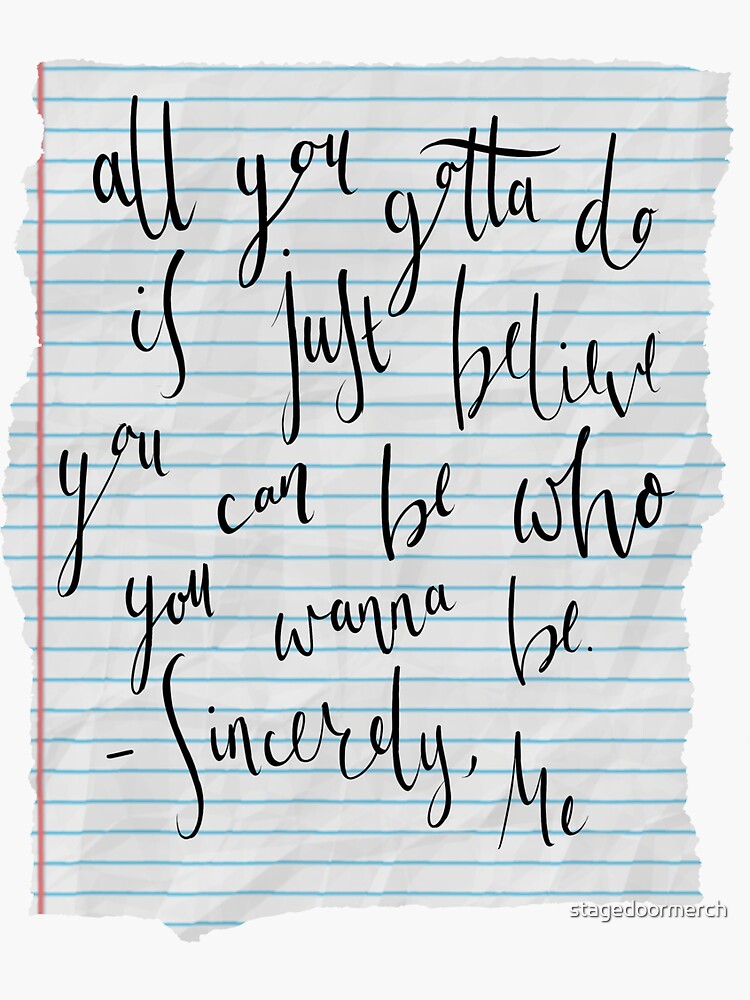 all you gotta do
is just believe
you can be who
you wanna be.
- Sincerely, Me
stagedoormerch